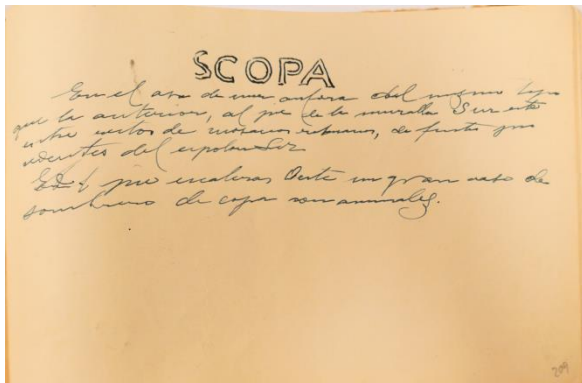 SCOPA
En el asa de una anfora del mismo tipo
que la anterior, al pie de la muralla Sur este
entre restos de mosaicos romanos, de frente
del espolon Sur
pie escaleras Oeste un gran vaso de
sombrero de copa con animales.
209